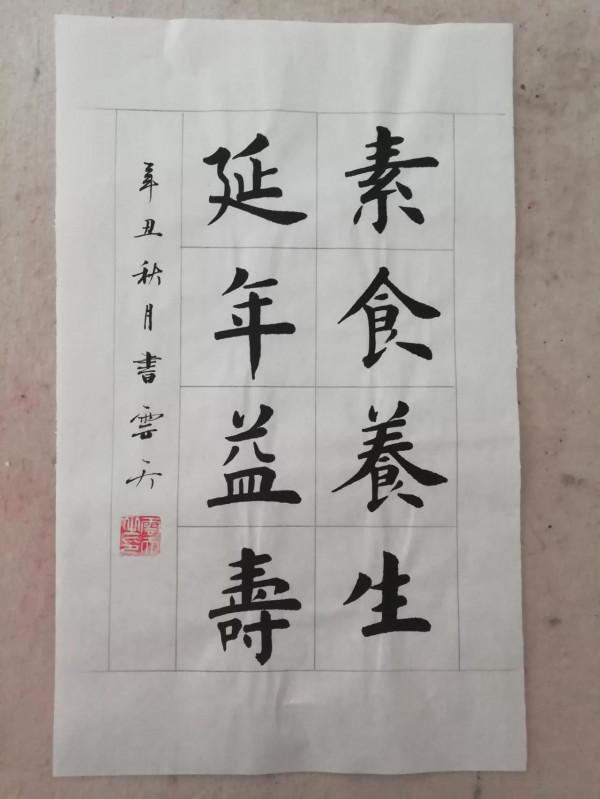 素食養生
延年益壽
辛丑秋月書雲齐